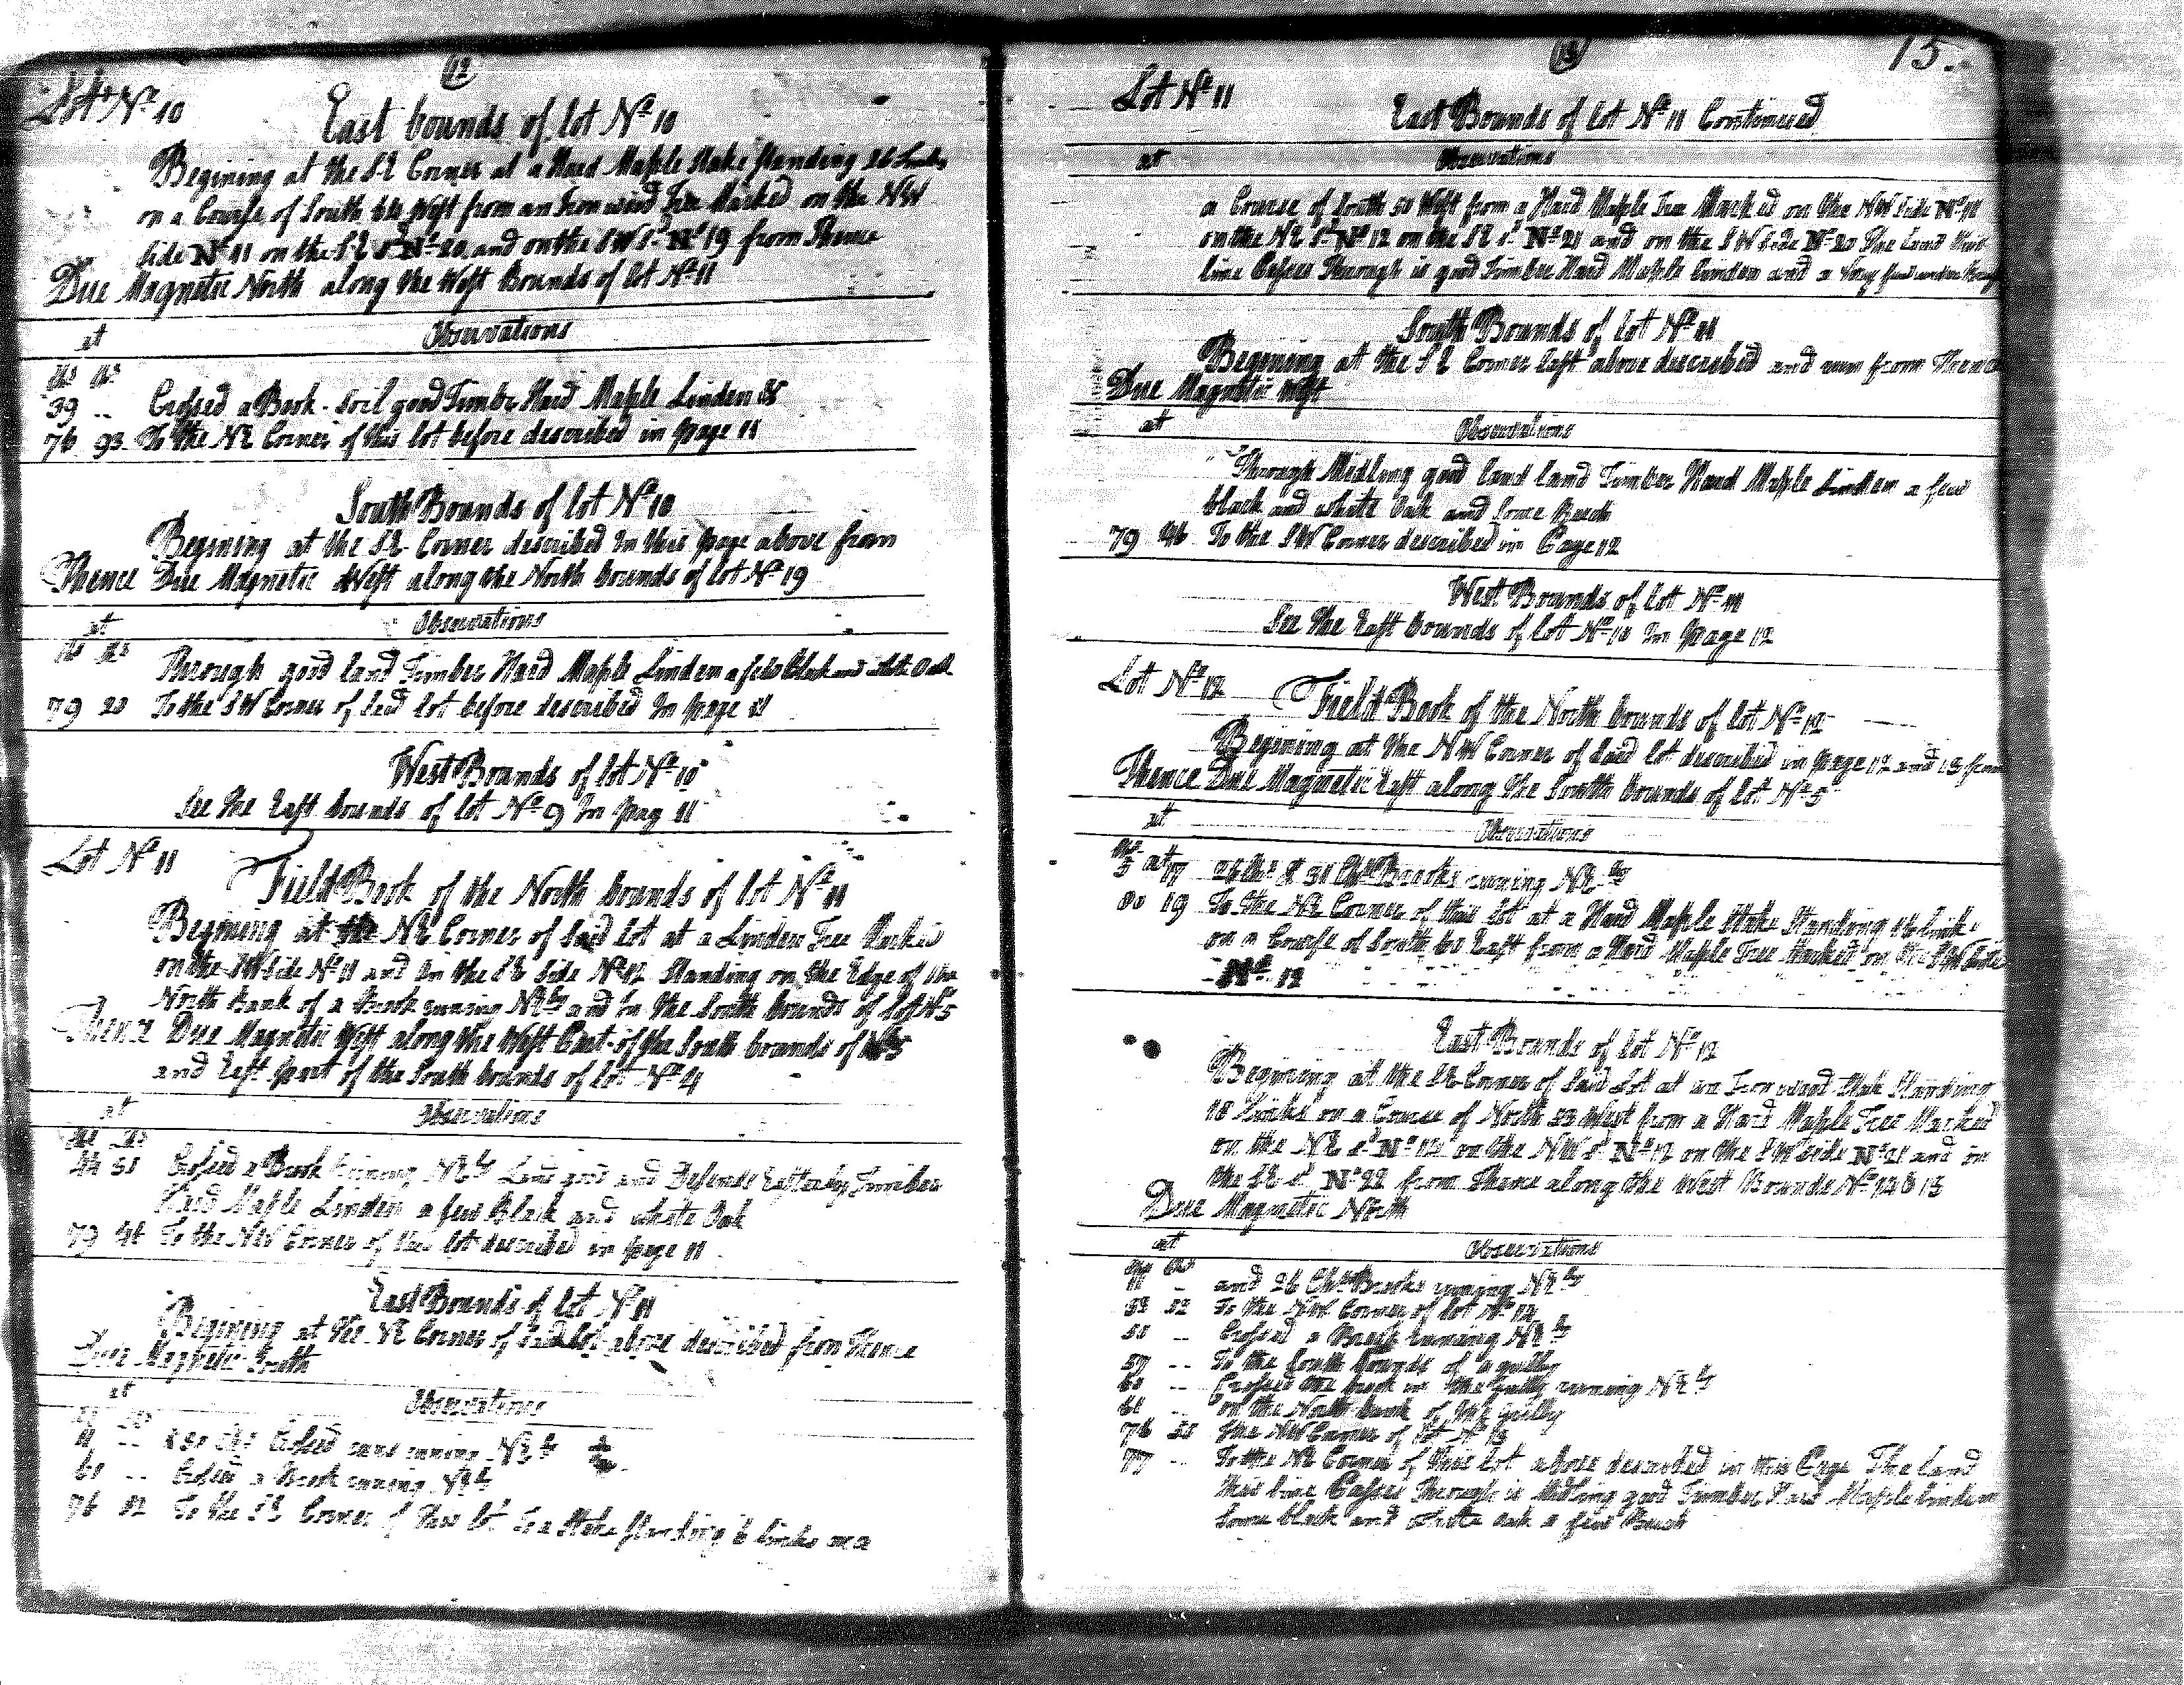 12
Lot No 10
East bounds of lot No 10
Begining at the SE Corner at a Hard Maple Stake standing 26 Links
on a Course of South West from an Iron wood Tree Marked on the NW
side No 11 on the SE sd No 20 and on the SW sd No 19 from Thence
Due Magnetic North along the West Bounds of lot No 11
at Observations
39 .. Crossed a Brook. Soil good Timber Hard Maple Linden &
76 93 To the NE Corner of this lot before described in page 11
South Bounds of lot No 10
Begining at the SE Corner described In this page above from
Thence Due Magnetic West along the North bounds of lot No 19
at Observations
Through good land Timber Hard Maple Linden a few Black and white Oak
79 20 To the SW Corner of said lot before described In page 11
West Bounds of lot No 10
See the East bounds of lot No 9 In pag 11
Lot No 11
Field Book of the North bounds of lot No 11
Begining at the NE Corner of Said Lot at a Linden Tree Marked
on the SW side No 11 and on the SE side No 12 Standing on the Edge of the
North Bank of a Brook running NEly and In the South bounds of Lot No 5
Thence Due Magnetic West along the West Part of the South bounds of No 5
and East part of the South bounds of lot No 4
at Observations
44 51 Crossed a Brook running NEly Land good and Descends Easterly Timber
Hard Maple Linden a few Black and white Oak
79 46 To the NW Corner of this lot described in page 11
East Bounds of lot No 11
Begining at the NE Corner of Said lot above described from Thence
Due Magnetic South
at Observations
Crossed same running NEly
60 .. Crossed a Brook running NEly
76 82 To the SE Corner of this lot To a Stake standing links on a
13
15.
Lot No 11
East Bounds of lot No 11 Continued
at Observations
a Course of South 50 West from a Hard Maple Tree Marked on the NW side No 11
on the NE sd No 12 on the SE sd No 21 and on the SW side No 20 The Land this
line Passes Through is good Timber Hard Maple Linden and a
South Bounds of lot No 11
Begining at the SE Corner last above described and run from Thence
Due Magnetic West
at Observations
Through Midling good land land Timber Hard Maple Linden a few
black and white Oak and some Beech
79 46 To the SW Corner described in Page 12
West Bounds of lot No 11
See the East bounds of lot No 10 In page 12
Lot No 12
Field Book of the North bounds of lot No 12
Begining at the NW Corner of Said lot described in page 12 and 13 from
Thence Due Magnetic East along the South bounds of lot No 5
at Observations
3 at 17 26 Chs & 31 Chs Brooks running NEly
80 19 To the NE Corner of this lot at a Hard Maple Stake Standing 16 links
on a Course of South 60 East from a Hard Maple Tree Marked on the SW Side
No 12
East Bounds of lot No 12
Begining at the SE Corner of Said Lot at an Iron wood Stake Standing
18 Links on a Course of North 53 West from a Hard Maple Tree Marked
on the NE sd No 13 on the NW sd No 12 on the SW side No 21 and on
the SE sd No 22 from Thence along the West Bounds No 14 & 13
Due Magnetic North
at Observations
11 .. and 26 Chs Brooks running NEly
To the NW Corner of lot No
51 .. Crossed a Brook running NEly
57 .. To the South bounds of a gully
60 .. Crossed the brook in the gully running NEly
61 .. on the North bank of the gully
76 51 the NW Corner of lot No 13
77 .. To the NE Corner of this lot above described in this Page The Land
this line Passes Through is Midling good Timber Hard Maple Linden
Some black and white oak a few Beech